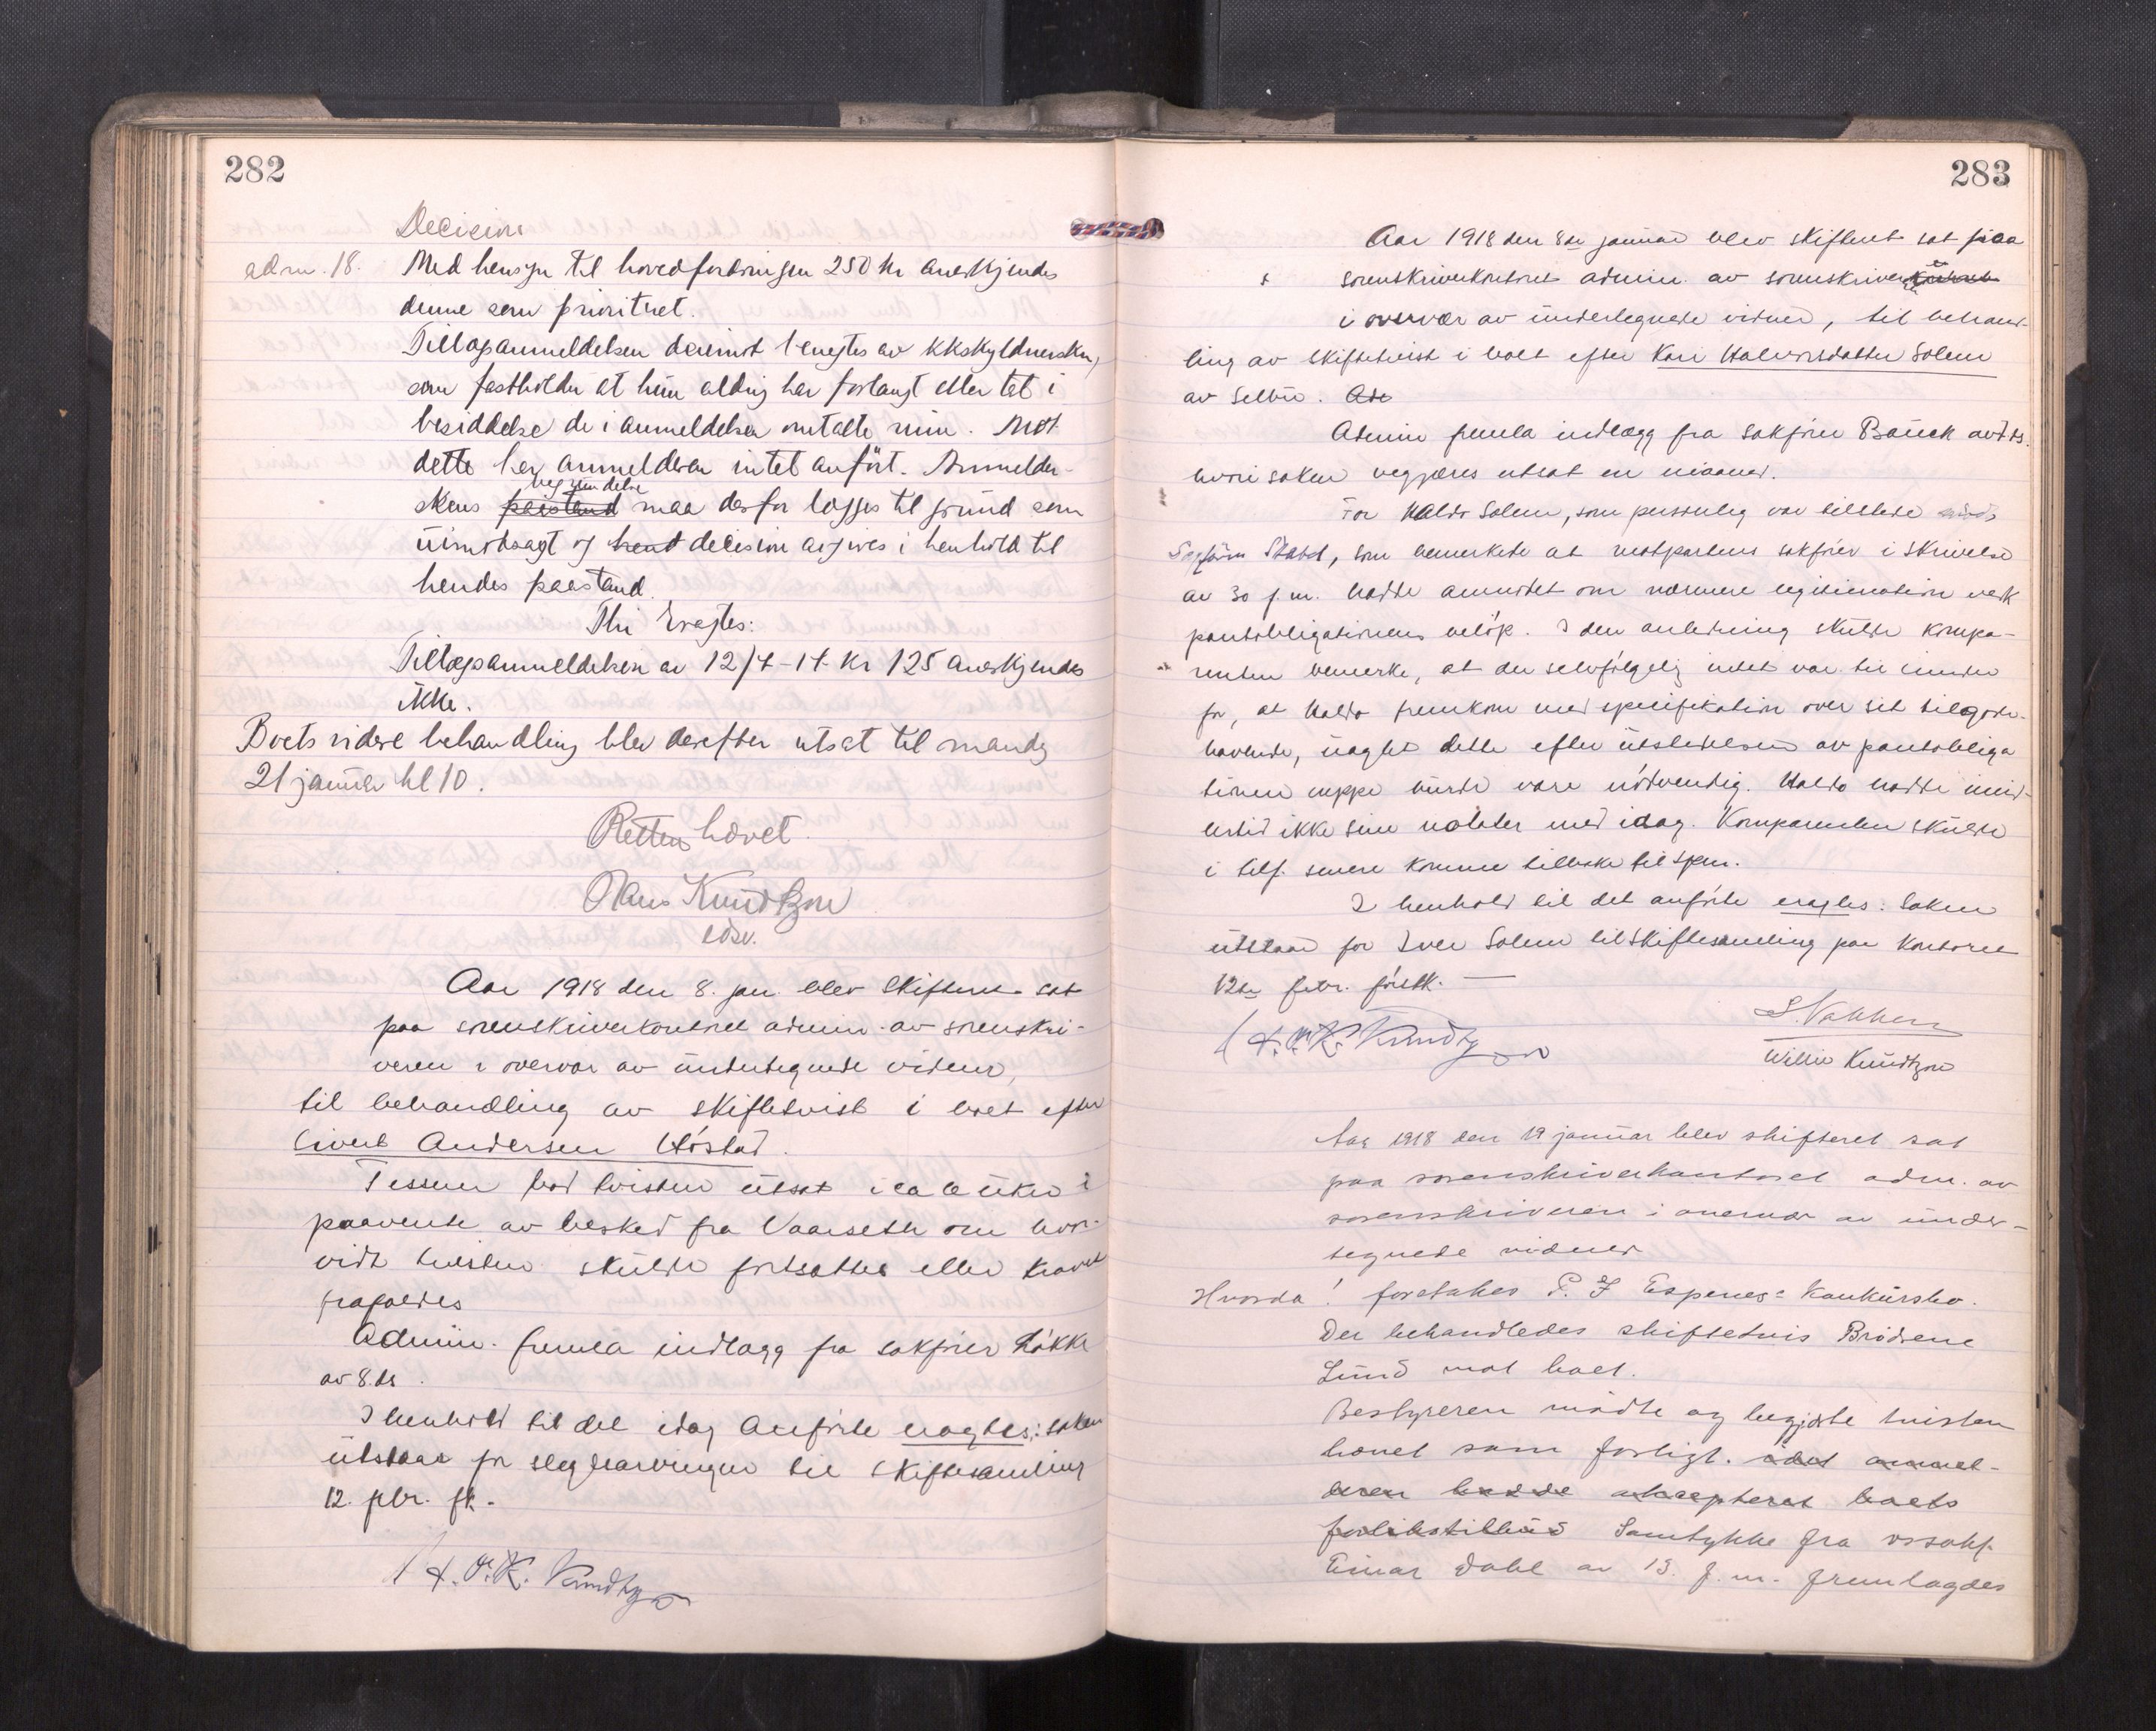 282
Decision
ad nr. 18. Med hensyn til hovedfordringen 250 kr anerkjendes
denne som prioritet.
Tillægsanmeldelsen derimot benegtes av
som fastholder at hun aldrig har forlangt eller tat i
besiddelse de i anmeldelsen omtalte . Mot
dette har anmelderen intet anført. Anmelder-
skens paastand begrundelse maa derfor lægges til grund som
uimotsagt og hend decision avgives i henhold til
hendes paastand.
Thi Eragtes:
Tillægsanmeldelsen av 12/4-14 kr 125 anerkjendes
ikke.
Boets videre behandling blev derefter utsat til mandag
21 januar kl 10.
Retten hævet.
Hans Knudtzon
edsv.
Aar 1918 den 8. jan. blev skifteret sat
paa sorenskriverkontoret admin. av sorenskri-
veren i overvær av undertegnede vidner,
til behandling av skiftetvist i boet efter
Sivert Andersen Høstad.
Tessem bad tvisten utsat i ca 6 uker i
paavente av besked fra Vaarseth om hvor-
vidt tvisten skulde fortsættes eller kravet
frafaldes
Admin. fremla indlægg fra sakfører Løkke
av 8. ds.
I henhold til det idag anførte eragtes: saken
utstaar for slegtarvinger til skiftesamling
12. febr. fk.
H. P. K. Knudtzon
283
Aar 1918 den 8de januar blev skifteret sat paa
sorenskriverkontoret admin. av sorenskriveren kontoret
i overvær av undertegnede vidner, til behand-
ling av skiftetvist i boet efter Kari Halvorsdatter Solem
av Selbu. Ade
Admin fremla indlægg fra sakfører Bauck av 7 ds.
hvori saken begjæres utsat en maaned.
For Haldo Solem, som personlig var tilstede møds
Sagfører Stabel, som bemerkete at motpartens sakfører i skrivelse
av 30 f.m. hadde anmodet om nærmere legitimation vedk
pantobligationens beløp. I den anledning skulde kompa-
renten bemerke, at der selvfølgelig intet var til hinder
for, at Haldo fremkom med specifikation over sit tilgode-
havende, uagtet dette efter utstedelsen av pantobliga
tionen neppe burde være nødvendig. Haldo hadde imid-
lertid ikke sine notater med idag. Komparenten skulde
i tilf. senere komme tilbake til spm.
I henhold til det anførte eragtes: Saken
utstaar for Iver Solem til skiftesamling paa kontoret
12te febr. førstk.
H. P. K. Knudtzon
Willie Knudtzon
Aar 1918 den 19 januar blev skifteret sat
paa sorenskriverkontoret adm. av
sorenskriveren i overvær av under-
tegnede vidner
Hvorda! foretakes P. J Espenes' konkursbo.
Der behandledes skiftetvis Brødrene
Lund mot boet.
Bestyreren mødte og begjærte tvisten
hævet som forligt. idet anmel-
deren hadde akcepteret boets
forlikstilbud Samtykke fra orsakf.
Einar Dahl av 13. f. m. fremlagdes